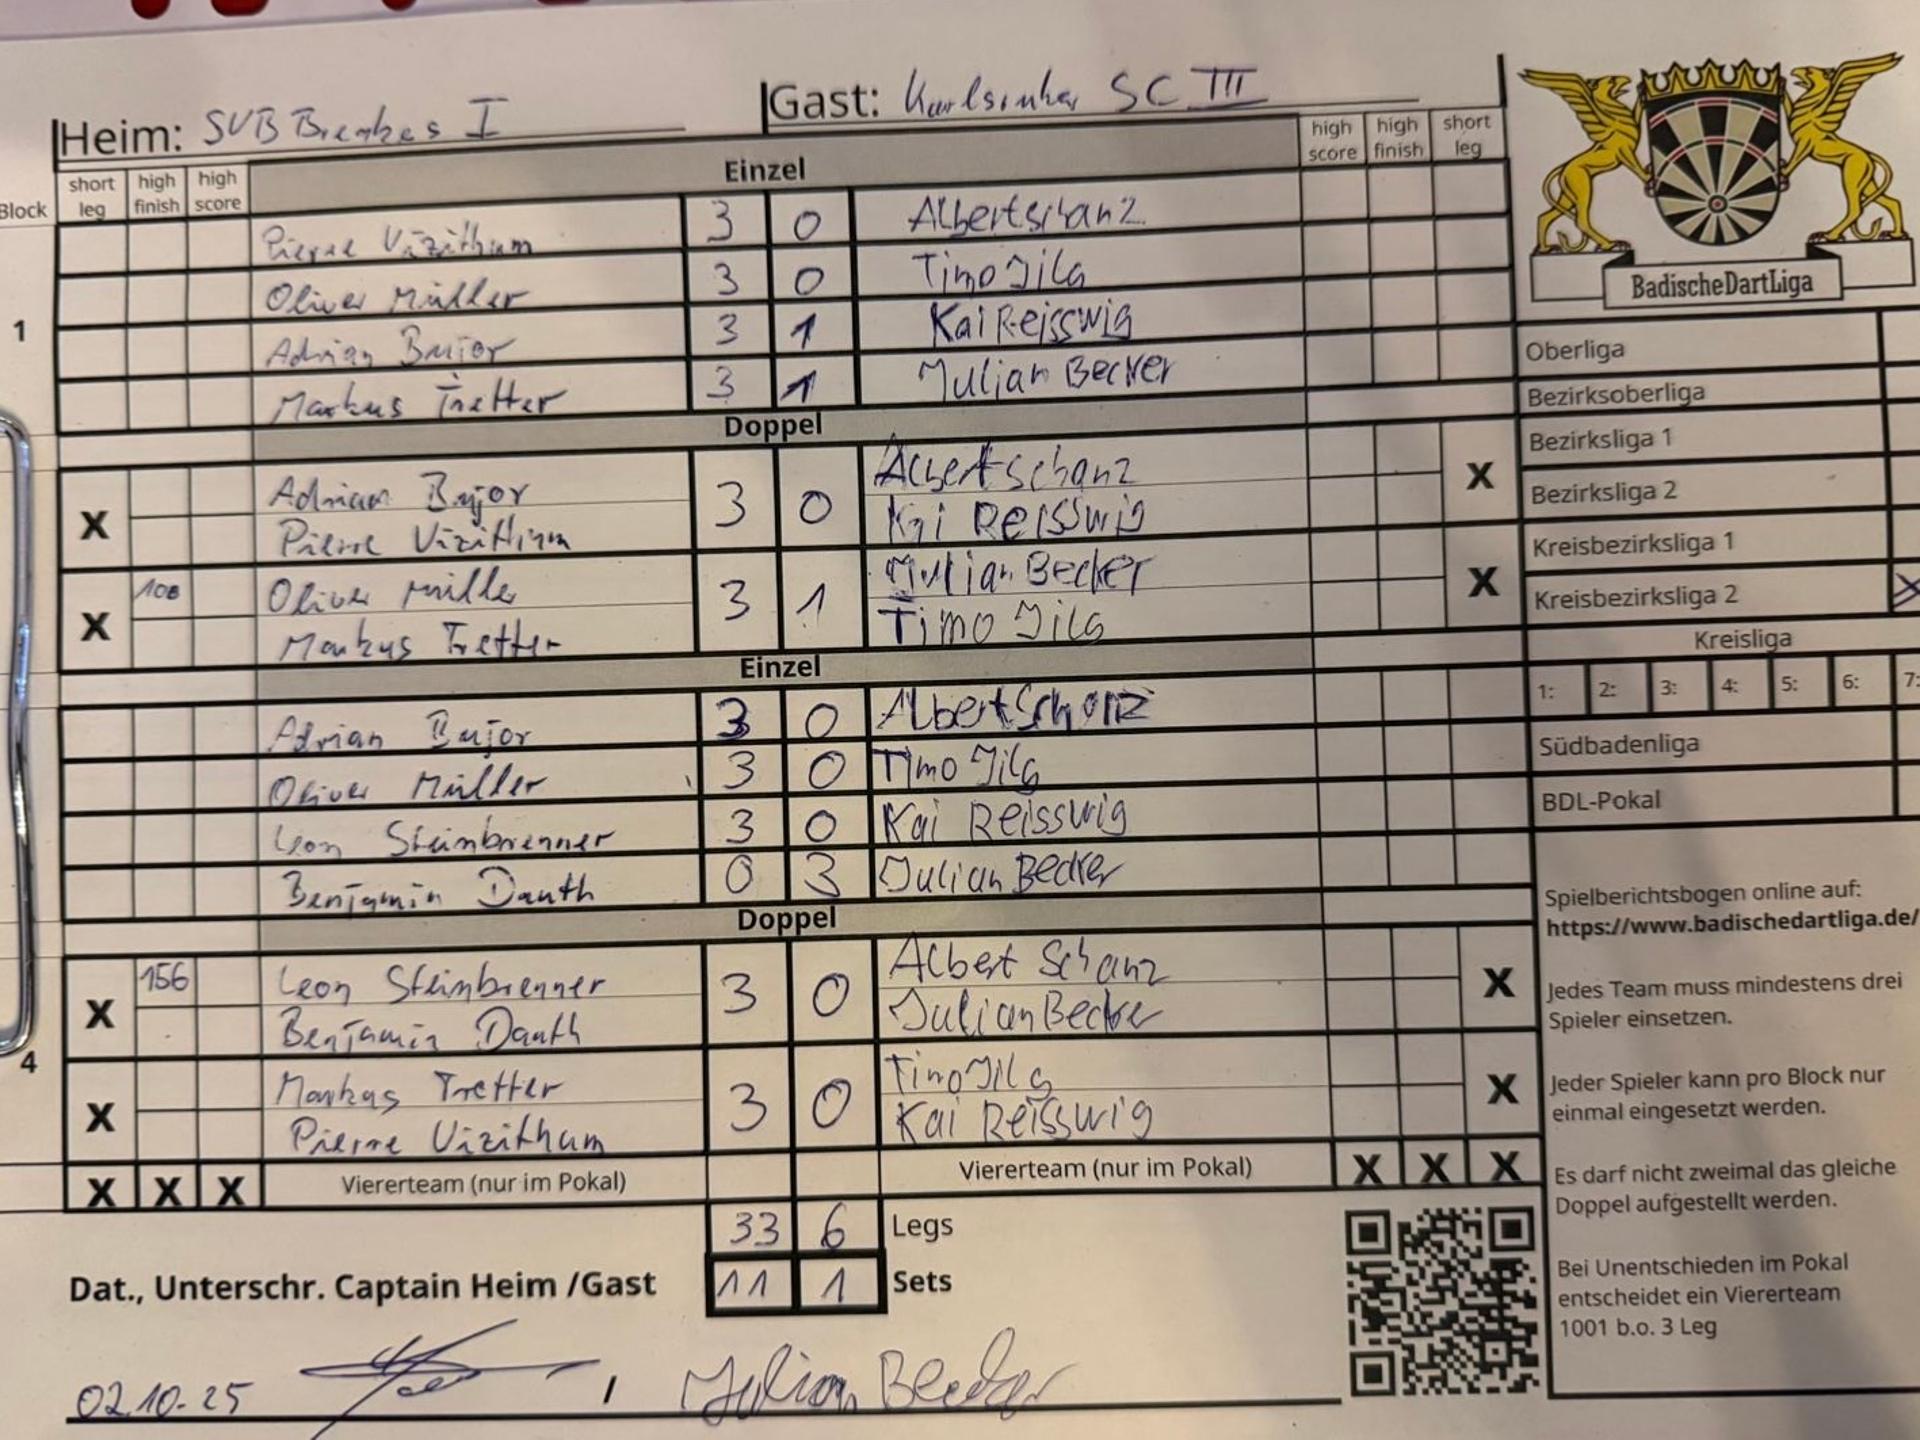 Heim: SVB Breakes I
Gast: Karlsruher SC III
Block
short leg
high finish
high score
Einzel
high score
high finish
short leg
1
Pierre Vizithum 3 0 Albert schanz
Oliver Müller 3 0 Timo Jilg
Adrian Bujor 3 1 Kai Reisswig
Markus Tretter 3 1 Julian Becker
Doppel
X Adrian Bujor 3 0 Albert schanz X
Pierre Vizithum Kai Reisswig
X 108 Oliver Müller 3 1 Julian Becker X
Markus Tretter Timo Jilg
Einzel
Adrian Bujor 3 0 Albert Schanz
Oliver Müller 3 0 Timo Jilg
Leon Steinbrenner 3 0 Kai Reisswig
Benjamin Dauth 0 3 Julian Becker
Doppel
4
X 156 Leon Steinbrenner 3 0 Albert Schanz X
Benjamin Dauth Julian Becker
X Markus Tretter 3 0 Timo Jilg X
Pierre Vizithum Kai Reisswig
X X X Viererteam (nur im Pokal) Viererteam (nur im Pokal) X X X
33 6 Legs
11 1 Sets
Dat., Unterschr. Captain Heim /Gast
02.10.25 / Julian Becker
BadischeDartLiga
Oberliga
Bezirksoberliga
Bezirksliga 1
Bezirksliga 2
Kreisbezirksliga 1
Kreisbezirksliga 2 X
Kreisliga
1: 2: 3: 4: 5: 6: 7:
Südbadenliga
BDL-Pokal
Spielberichtsbogen online auf:
https://www.badischedartliga.de/
Jedes Team muss mindestens drei
Spieler einsetzen.
Jeder Spieler kann pro Block nur
einmal eingesetzt werden.
Es darf nicht zweimal das gleiche
Doppel aufgestellt werden.
Bei Unentschieden im Pokal
entscheidet ein Viererteam
1001 b.o. 3 Leg